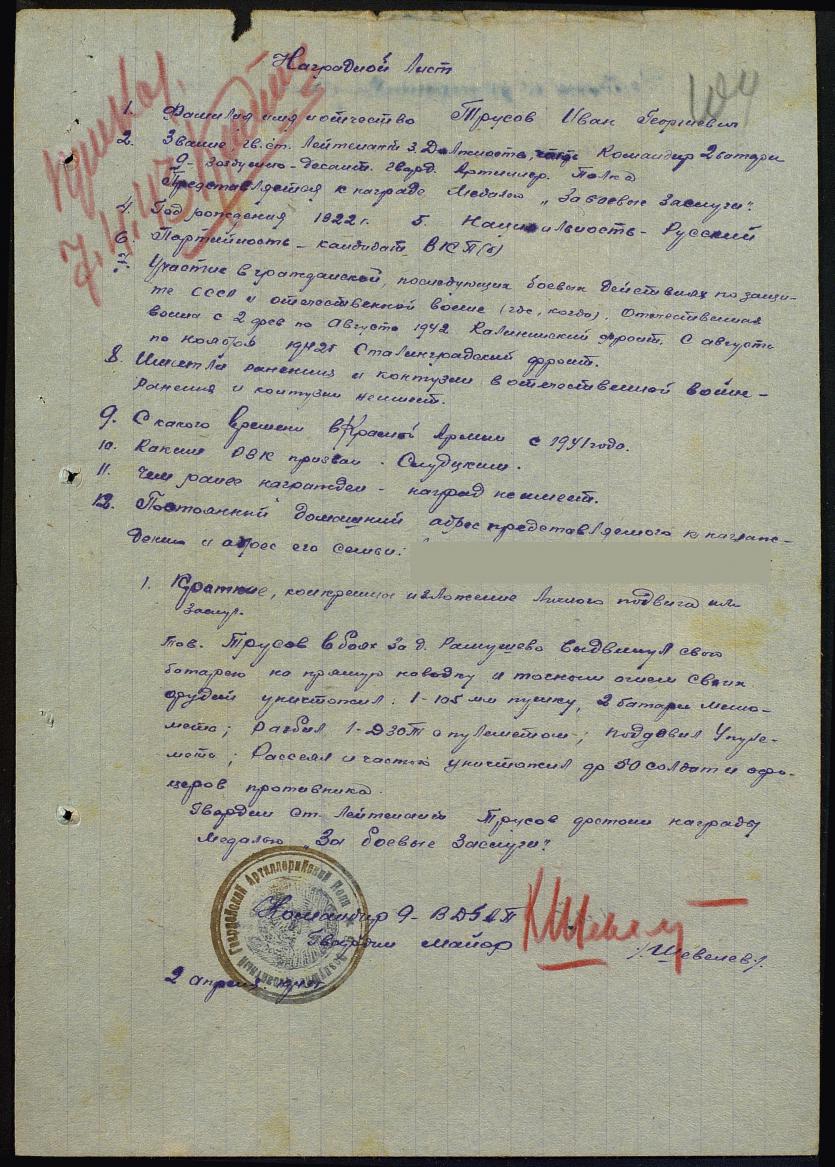 Наградной Лист
104
7.4.43
1. Фамилия имя и отчество Трусов Иван Георгиевич
2. Звание гв. ст. Лейтенант 3. Должность, Командир 2 батари
9-воздушно-десант. гвард. Артиллер. Полка
Представляется к награде Медалью „За боевые заслуги".
4. Год рождения 1922 г. 5. Национильность - Русский
6. Партийность - кандидат ВКП(б)
7. Участие в гражданской, последующих боевых действиях по защи-
те СССР и отечественной войне (где, когда). Отечественная
война с 2 фев по Август 1942 Калининский фронт. С августа
по ноябрь 1942 г Сталинградский фронт.
8. Имеет ли ранения и контузии в отечественной войне -
Ранения и контузии не имеет.
9. С какого времени в Красной Армии с 1941 года.
10. Каким РВК призван - Слудцким.
11. Чем ранее награжден - наград не имеет.
12. Постоянный домашний адрес представляемого к награж-
дению и адрес его семьи:
1. Краткие, конкретное изложение личного подвига или
заслуг.
тов. Трусов в боях за д. Рамушево выдвинул свою
батарею на прямую наводку и точным огнем своих
орудий уничтожил: 1-105 мм пушку, 2 батари мино-
мета; Разбил 1-ДЗОТ с пулеметом; подавил 4 пуле-
мета; Рассеял и частью уничтожил до 50 солдат и офи-
церов противника.
Гвардии Ст. Лейтенант Трусов достоин награды
Медалью „За боевые Заслуги".
Командир 9-ВДГАП
Гвардии майор
/Шевелев/.
2 апреля
Гвардейский Артиллерийский Полк